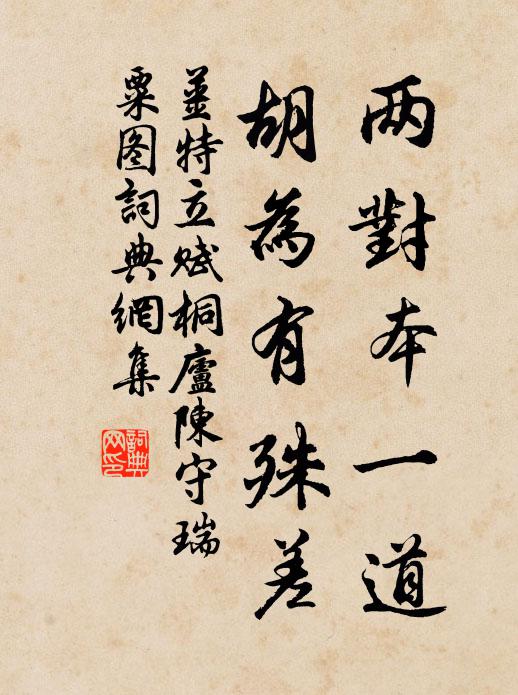 两對本一道
胡為有殊差
姜特立賦桐廬陳守瑞
粟图詞典網集
詞典网印